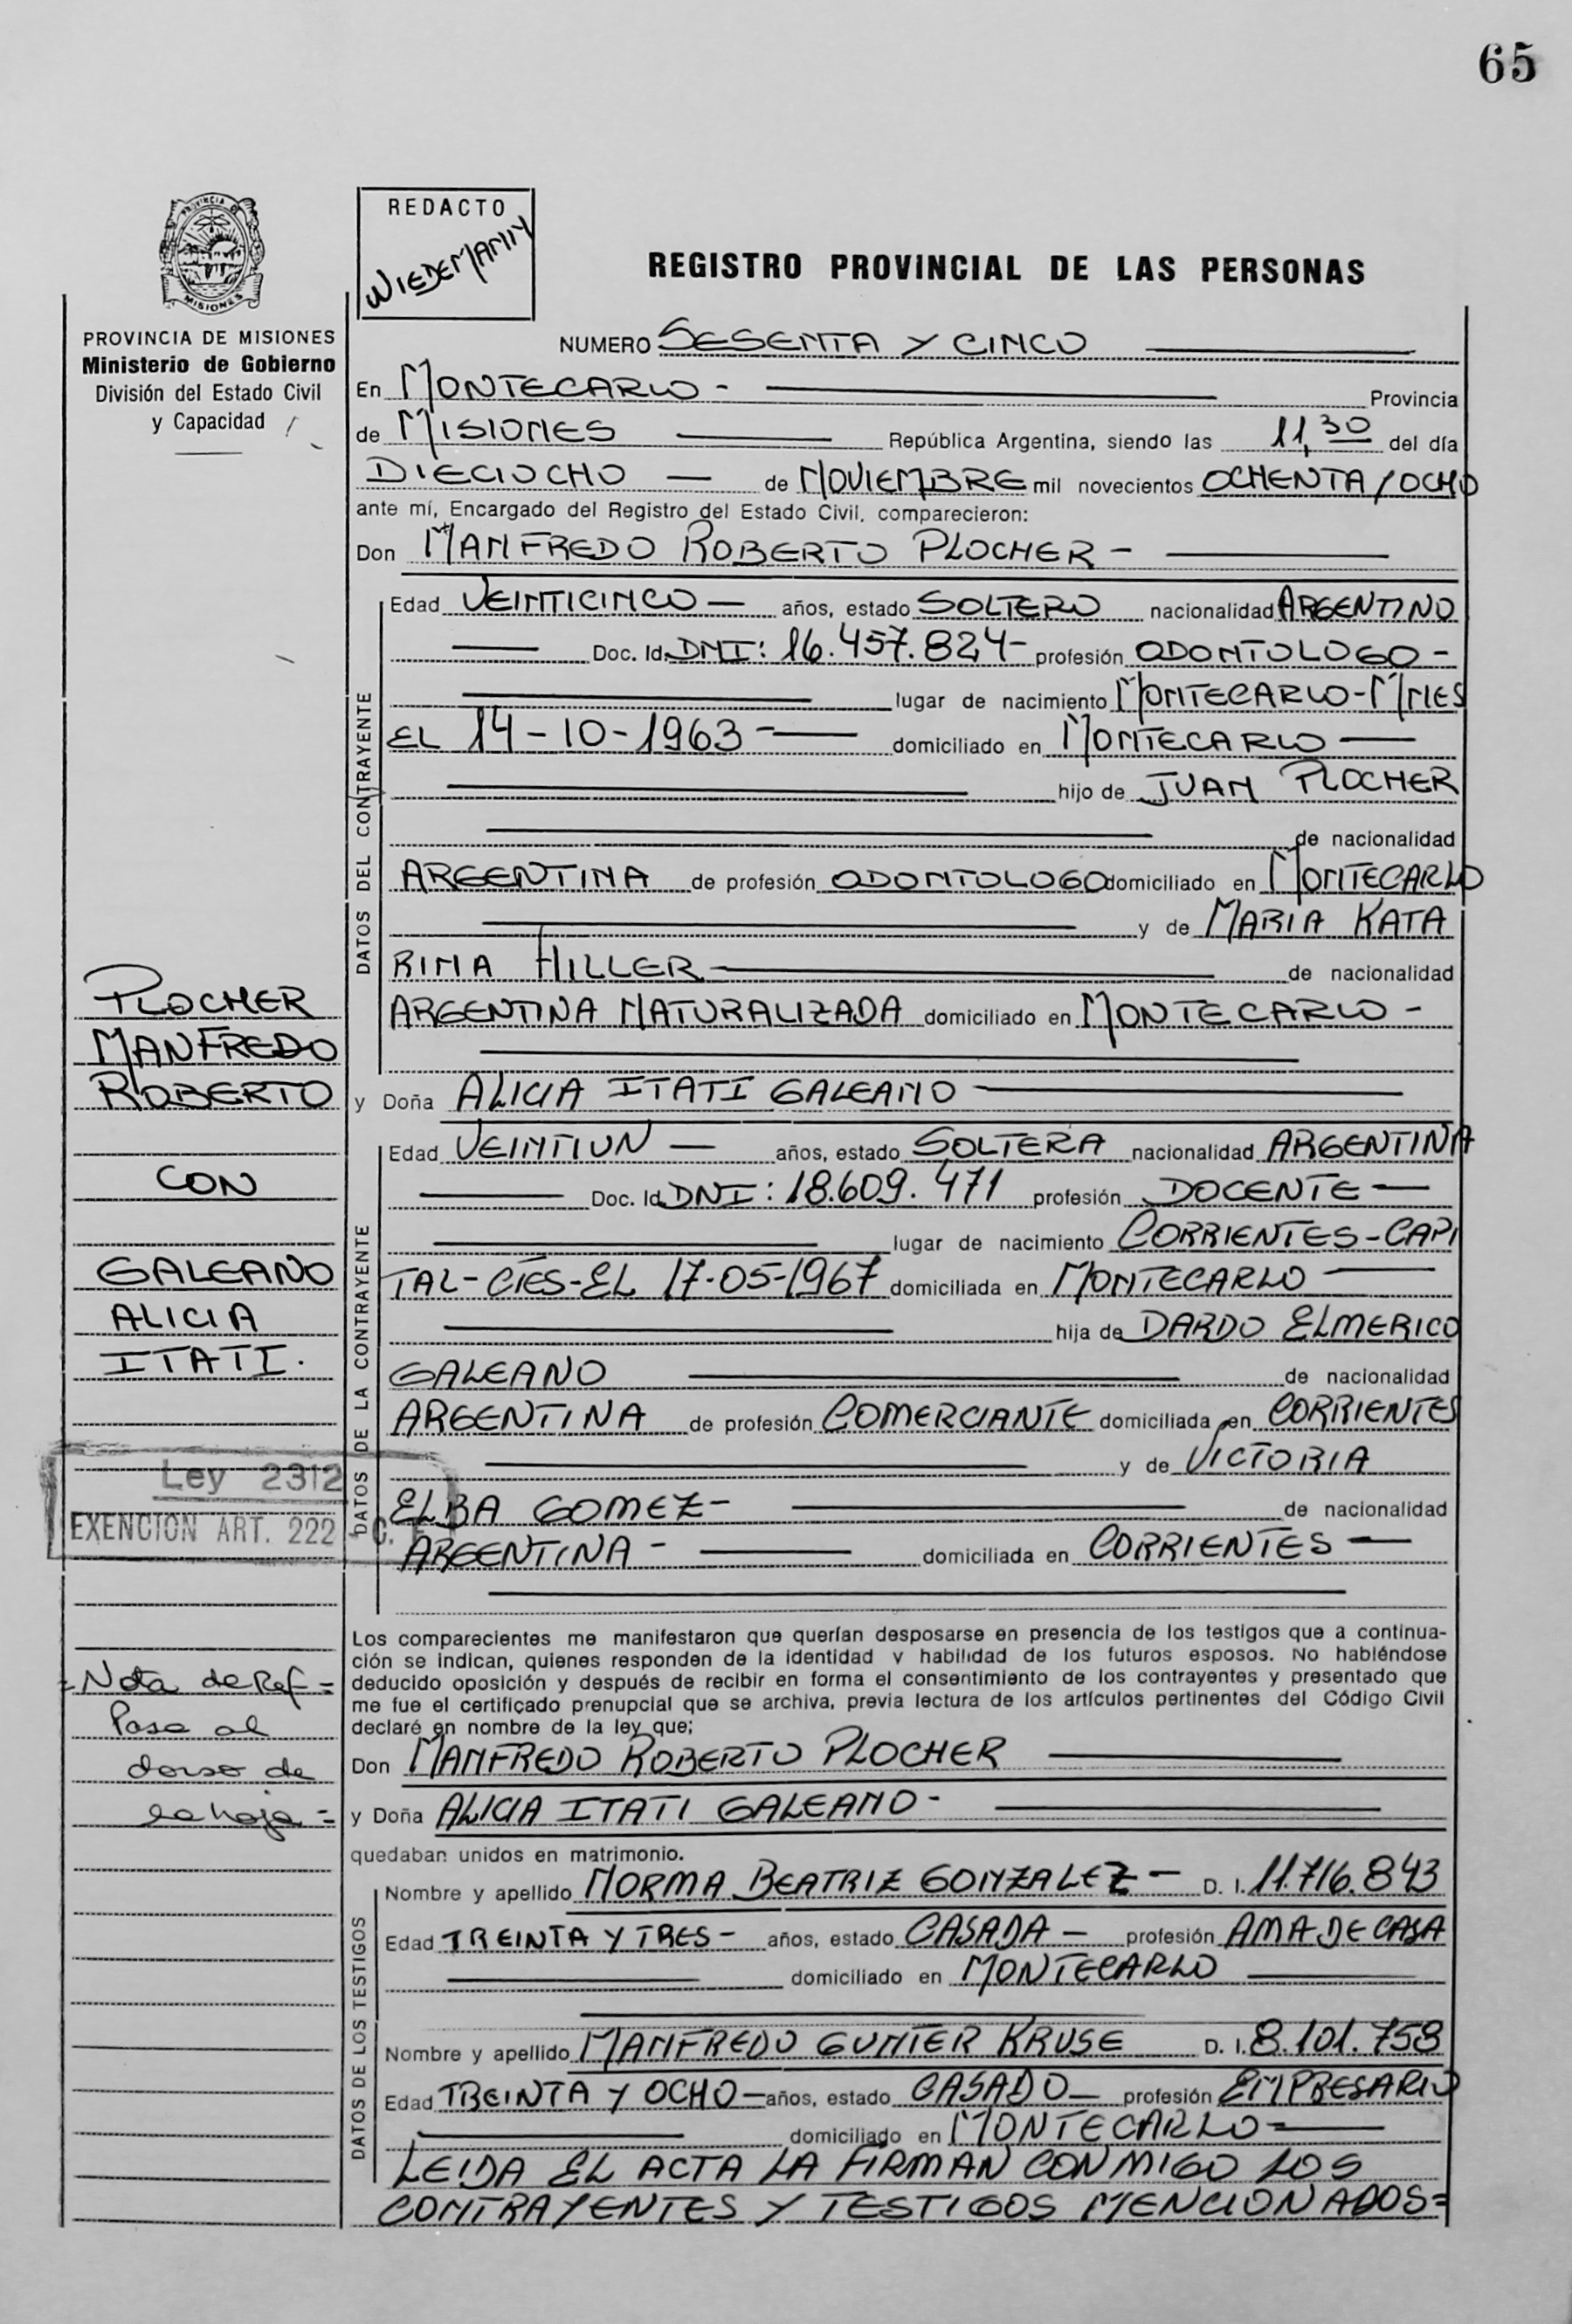 65
PROVINCIA DE
MISIONES
PROVINCIA DE MISIONES
Ministerio de Gobierno
División del Estado Civil
y Capacidad
REDACTO
WIEDEMANN
REGISTRO PROVINCIAL DE LAS PERSONAS
NUMERO SESENTA Y CINCO
En MONTECARLO - Provincia
de MISIONES República Argentina, siendo las 11,30 del día
DIECIOCHO — de NOVIEMBRE mil novecientos OCHENTA/OCHO
ante mí, Encargado del Registro del Estado Civil, comparecieron:
Don MANFREDO ROBERTO PLOCHER -
DATOS DEL CONTRAYENTE
Edad VEINTICINCO — años, estado SOLTERO nacionalidad ARGENTINO
Doc. Id. DNI: 16.457.824- profesión ODONTOLOGO -
lugar de nacimiento MONTECARLO-MNES
EL 14-10-1963 - domiciliado en MONTECARLO —
hijo de JUAN PLOCHER
de nacionalidad
ARGENTINA de profesión ODONTOLOGO domiciliado en MONTECARLO
y de MARIA KATA
RINA HILLER de nacionalidad
ARGENTINA NATURALIZADA domiciliado en MONTECARLO -
y Doña ALICIA ITATI GALEANO
DATOS DE LA CONTRAYENTE
Edad VEINTIUN — años, estado SOLTERA nacionalidad ARGENTINA
Doc. Id DNI: 18.609.471 profesión DOCENTE —
lugar de nacimiento CORRIENTES-CAPI
TAL-CTES-EL 17-05-1967 domiciliada en MONTECARLO
hija de DARDO ELMERICO
GALEANO de nacionalidad
ARGENTINA de profesión COMERCIANTE domiciliada en CORRIENTES
y de VICTORIA
ELBA GOMEZ- de nacionalidad
ARGENTINA - domiciliada en CORRIENTES —
Los comparecientes me manifestaron que querían desposarse en presencia de los testigos que a continua-
ción se indican, quienes responden de la identidad y habilidad de los futuros esposos. No habiéndose
deducido oposición y después de recibir en forma el consentimiento de los contrayentes y presentado que
me fue el certificado prenupcial que se archiva, previa lectura de los artículos pertinentes del Código Civil
declaré en nombre de la ley que;
Don MANFREDO ROBERTO PLOCHER
y Doña ALICIA ITATI GALEANO -
quedaban unidos en matrimonio.
DATOS DE LOS TESTIGOS
Nombre y apellido NORMA BEATRIZ GONZALEZ — D. I. 11.716.843
Edad TREINTA Y TRES - años, estado CASADA — profesión AMA DE CASA
domiciliado en MONTECARLO
Nombre y apellido MANFREDO GUNTER KRUSE D. I. 8.101.758
Edad TREINTA Y OCHO — años, estado CASADO — profesión EMPRESARIO
domiciliado en MONTECARLO
LEIDA EL ACTA LA FIRMAN CONMIGO LOS
CONTRAYENTES Y TESTIGOS MENCIONADOS=
PLOCHER
MANFREDO
ROBERTO
CON
GALEANO
ALICIA
ITATI.
Ley 2312
EXENCION ART. 222 - C.
= Nota de Ref =
Pasa al
dorso de
la hoja =